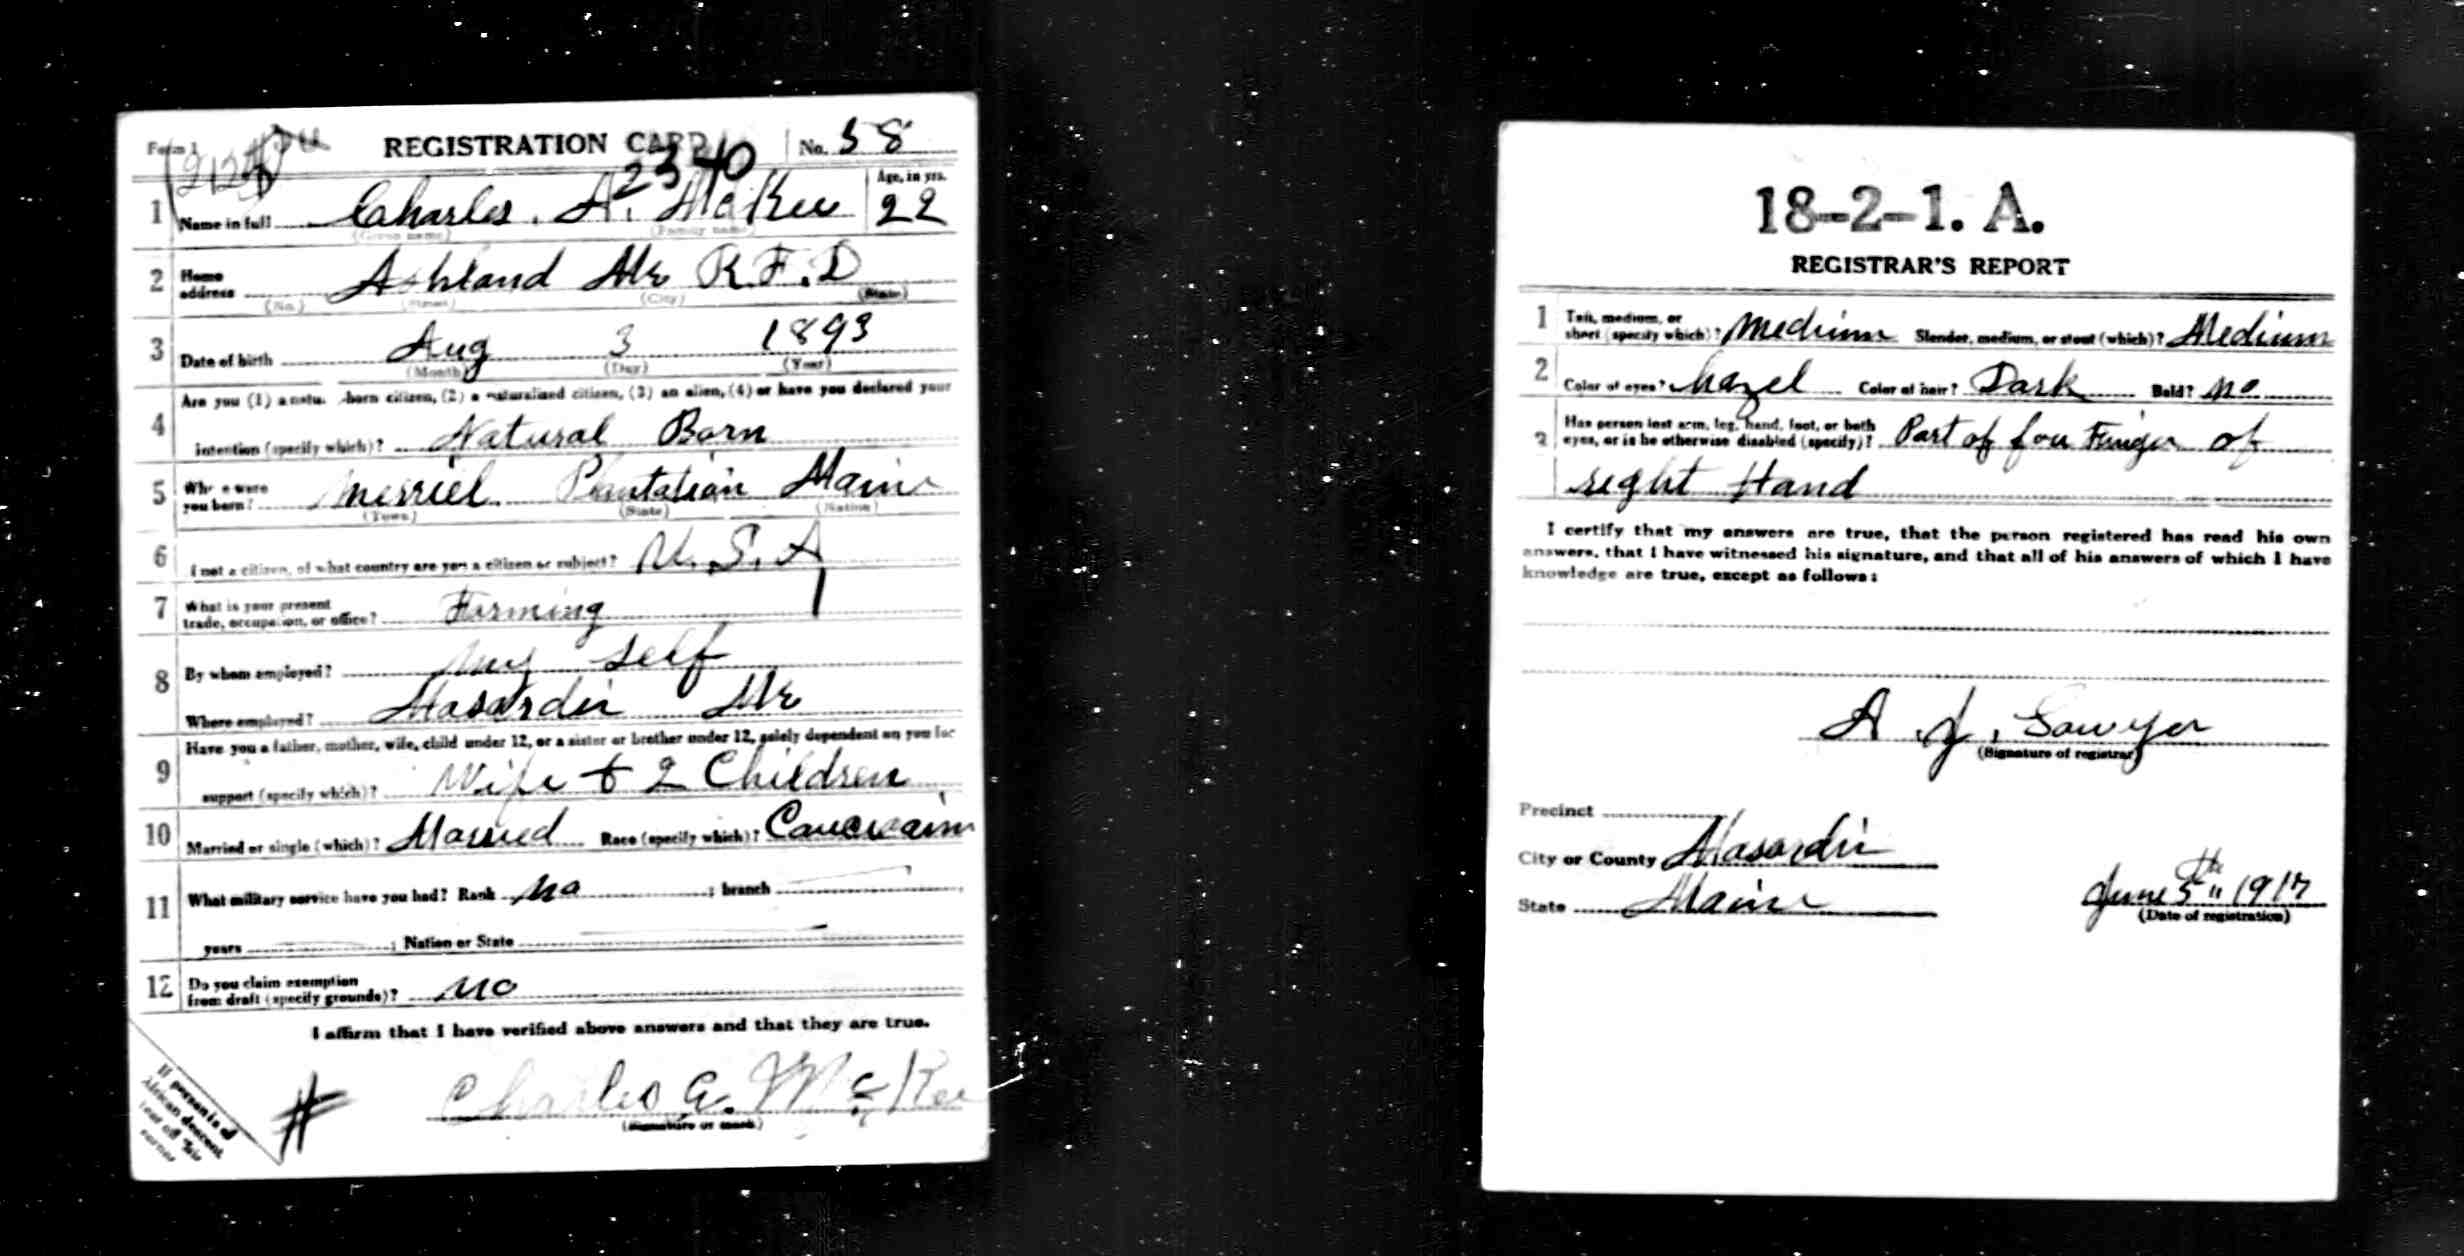 Form 1
REGISTRATION CARD No. 58
2340
1 Name in full Charles. A. McKee Age, in yrs. 22
(Given name) (Family name)
2 Home address Ashland Me R.F.D
(No.) (Street) (City) (State)
3 Date of birth Aug 3 1893
(Month) (Day) (Year)
4 Are you (1) a natu. -born citizen, (2) a naturalized citizen, (3) an alien, (4) or have you declared your
intention (specify which)? Natural Born
5 Whe e were you born? Merriel Plantation Maine
(Town) (State) (Nation)
6 I not a citizen, of what country are you a citizen or subject? U.S.A
7 What is your present trade, occupation, or office? Farming
8 By whom employed? my self
Where employed? Masardis Me
9 Have you a father, mother, wife, child under 12, or a sister or brother under 12, solely dependent on you for
support (specify which)? Wife & 2 Children
10 Married or single (which)? Married Race (specify which)?
11 What military service have you had? Rank No ; branch
years ; Nation or State
12 Do you claim exemption from draft (specify grounds)? No
I affirm that I have verified above answers and that they are true.
#
Charles A. McKee
(Signature or mark)
If person is of
African descent
tear off this
corner
18-2-1. A.
REGISTRAR'S REPORT
1 Tall, medium, or short (specify which)? Medium Slender, medium, or stout (which)? Medium
2 Color of eyes? hazel Color of hair? Dark Bald? No
3 Has person lost arm, leg, hand, foot, or both eyes, or is he otherwise disabled (specify)? Part of four Finger of
right Hand
I certify that my answers are true, that the person registered has read his own
answers, that I have witnessed his signature, and that all of his answers of which I have
knowledge are true, except as follows:
A. J. Sawyer
(Signature of registrar)
Precinct
City or County Masardis
State Maine
June 5th 1917
(Date of registration)